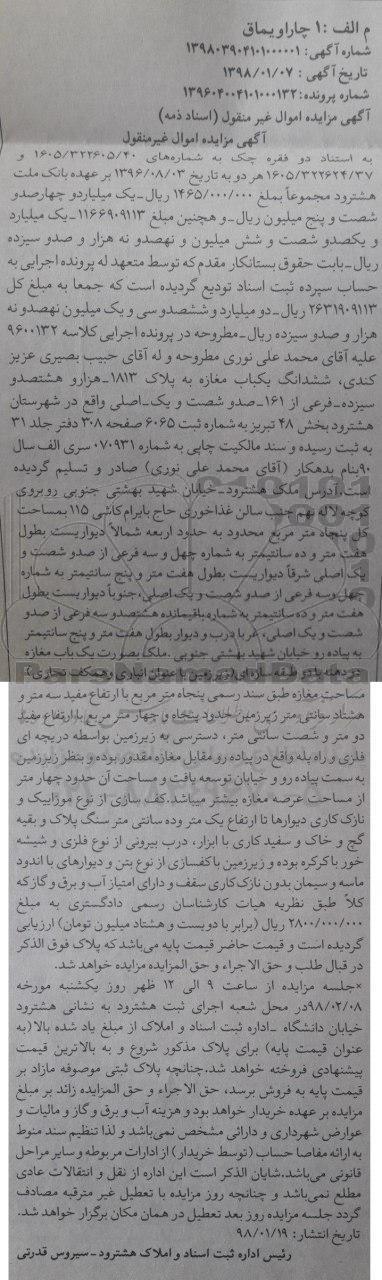 م الف :۱ چاراویماق
شماره آگهی: ۱۳۹۸۰۳۹۰۴۱۰۱۰۰۰۰۰۱
تاریخ آگهی : ۱۳۹۸/۰۱/۰۷
شماره پرونده: ۱۳۹۶۰۴۰۰۴۱۰۱۰۰۰۱۳۲
آگهی مزایده اموال غیر منقول (اسناد ذمه)
آگهی مزایده اموال غیرمنقول
به استناد دو فقره چک به شماره‌های ۱۶۰۵/۳۲۲۶۰۵/۴۰ و
۱۶۰۵/۳۲۲۶۲۴/۳۷ هر دو به تاریخ ۱۳۹۶/۰۸/۰۳ بر عهده بانک ملت
هشترود مجموعاً بمبلغ ۱۴۶۵/۰۰۰/۰۰۰ ریال_یک میلیاردو چهارصدو
شصت و پنج میلیون ریال_و هچنین مبلغ ۱۱۶۶۹۰۹۱۱۳_یک میلیارد
و یکصدو شصت و شش میلیون و نهصدو نه هزار و صدو سیزده
ریال_بابت حقوق بستانکار مقدم که توسط متعهد له پرونده اجرایی به
حساب سپرده ثبت اسناد تودیع گردیده است که جمعا به مبلغ کل
۲۶۳۱۹۰۹۱۱۳ ریال_دو میلیارد و ششصدو سی و یک میلیون نهصدو نه
هزار و صدو سیزده ریال_مطروحه در پرونده اجرایی کلاسه ۹۶۰۰۱۳۲
علیه آقای محمد علی نوری مطروحه و له آقای حبیب بصیری عزیز
کندی، ششدانگ یکباب مغازه به پلاک ۱۸۱۳_هزارو هشتصدو
سیزده_فرعی از ۱۶۱_صدو شصت و یک_اصلی واقع در شهرستان
هشترود بخش ۴۸ تبریز به شماره ثبت ۶۰۶۵ صفحه ۳۰۸ دفتر جلد ۳۱
به ثبت رسیده و سند مالکیت چاپی به شماره ۰۷۰۹۳۱ سری الف سال
۹۰بنام بدهکار (آقای محمد علی نوری) صادر و تسلیم گردیده
است.آدرس ملک هشترود_خیابان شهید بهشتی جنوبی روبروی
کوچه لاله نهم جنب سالن غذاخوری حاج بایرام کاشی ۱۱۵ بمساحت
کل پنجاه متر مربع محدود به حدود اربعه شمالاً دیواریست بطول
هفت متر و ده سانتیمتر به شماره چهل و سه فرعی از صدو شصت و
یک اصلی شرقاً دیواریست بطول هفت متر و پنج سانتیمتر به شماره
چهل وسه فرعی از صدو شصت و یک اصلی،جنوباً دیواریست بطول
هفت متر و ده سانتیمتر به شماره باقیمانده هشتصدو سه فرعی از صدو
شصت و یک اصلی، غربا درب و دیوار بطول هفت متر و پنج سانتیمتر
به پیاده رو خیابان شهید بهشتی جنوبی .ملک بصورت یک باب مغازه
مساحت مغازه طبق سند رسمی پنجاه متر مربع با ارتفاع مفید سه متر و
هشتاد سانتی متر زیرزمین حدود پنجاه و چهار متر مربع با ارتفاع مفید
دو متر و شصت سانتی متر، دسترسی به زیرزمین بواسطه دریچه ای
فلزی و راه پله واقع در پیاده رو مقابل مغازه مقدور بوده و بنظر زیرزمین
به سمت پیاده رو و خیابان توسعه یافت و مساحت آن حدود چهار متر
از مساحت عرصه مغازه بیشتر میباشد.کف سازی از نوع موزاییک و
نازک کاری دیوارها تا ارتفاع یک متر وده سانتی متر سنگ پلاک و بقیه
گچ و خاک و سفید کاری با ابزار، درب بیرونی از نوع فلزی و شیشه
خور با کرکره بوده و زیرزمین با کفسازی از نوع بتن و دیوارهای با اندود
ماسه و سیمان بدون نازک کاری سقف و دارای امتیاز آب و برق و گاز که
کلاً طبق نظریه هیات کارشناسان رسمی دادگستری به مبلغ
۲۸۰۰/۰۰۰/۰۰۰ ریال (برابر با دویست و هشتاد میلیون تومان) ارزیابی
گردیده است و قیمت حاضر قیمت پایه می‌باشد که پلاک فوق الذکر
در قبال طلب و حق الاجراء و حق المزایده مزایده خواهد شد.
×جلسه مزایده از ساعت ۹ الی ۱۲ ظهر روز یکشنبه مورخه
۹۸/۰۲/۰۸در محل شعبه اجرای ثبت هشترود به نشانی هشترود
خیابان دانشگاه _اداره ثبت اسناد و املاک از مبلغ یاد شده بالا(به
عنوان قیمت پایه) برای پلاک مذکور شروع و به بالاترین قیمت
پیشنهادی فروخته خواهد شد.چنانچه پلاک ثبتی موصوفه مازاد بر
قیمت پایه به فروش برسد، حق الاجراء و حق المزایده زائد بر مبلغ
مزایده بر عهده خریدار خواهد بود و هزینه آب و برق و گاز و مالیات و
عوارض شهرداری و دارائی مشخص نمی‌باشد و لذا تنظیم سند منوط
به ارائه مفاصا حساب (توسط خریدار) از ادارات مربوطه و سایر مراحل
قانونی می‌باشد.شایان الذکر است این اداره از نقل و انتقالات عادی
مطلع نمی‌باشد و چنانچه روز مزایده با تعطیل غیر مترقبه مصادف
گردد جلسه مزایده روز بعد تعطیل در همان مکان برگزار خواهد شد.
تاریخ انتشار: ۹۸/۰۱/۱۹
رئیس اداره ثبت اسناد و املاک هشترود_سیروس قدرتی